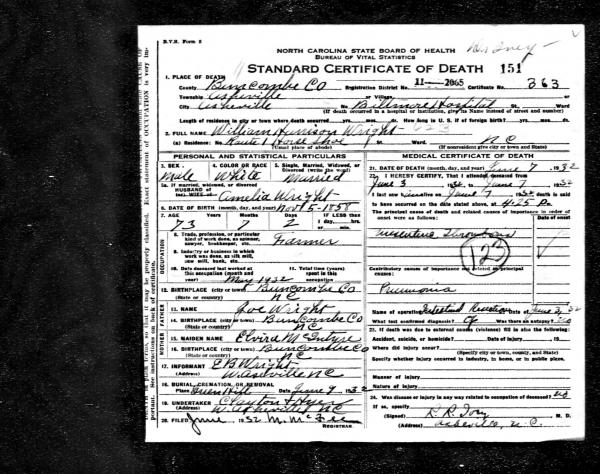 B.V.S. Form 8
NORTH CAROLINA STATE BOARD OF HEALTH
BUREAU OF VITAL STATISTICS
STANDARD CERTIFICATE OF DEATH 151
1. PLACE OF DEATH
County Buncombe Co Registration District No. 11-2065 Certificate No. 363
Township Asheville or Village
City Asheville No. Biltmore Hospital St. Ward
(If death occurred in a hospital or institution, give its Name instead of street and number)
Length of residence in city or town where death occurred yrs. mos. ds. How long in U. S. if of foreign birth? yrs. mos. ds.
2. FULL NAME William Harrison Wright 623
(a) Residence: No. Route 1 Horse Shoe St. Ward NC
(Usual place of abode)
PERSONAL AND STATISTICAL PARTICULARS
3. SEX Male
4. COLOR OR RACE White
5. Single, Married, Widowed, or Divorced (write the word) Married
5a. If married, widowed, or divorced
HUSBAND of
(or) WIFE of Amelia Wright
6. DATE OF BIRTH (month, day, and year) Nov 5-1858
7. AGE Years 73 Months 7 Days 2 If LESS than 1 day, hrs. or min.
8. Trade, profession, or particular kind of work done, as spinner, sawyer, bookkeeper, etc. Farmer
9. Industry or business in which work was done, as silk mill, saw mill, bank, etc.
10. Date deceased last worked at this occupation (month and year) May 1932
11. Total time (years) spent in this occupation
12. BIRTHPLACE (city or town) Buncombe Co
(State or country) NC
FATHER
13. NAME Wright
14. BIRTHPLACE (city or town) Buncombe Co
(State or country) NC
MOTHER
15. MAIDEN NAME Elvira McIntyre
16. BIRTHPLACE (city or town) Buncombe Co
(State or country) NC
17. INFORMANT E B Wright
(Address) W. Asheville NC
18. BURIAL, CREMATION, OR REMOVAL
Place Green Hill Date June 9 1932
19. UNDERTAKER Clayton
(Address) W. Asheville NC
20. FILED June 1932 REGISTRAR.
MEDICAL CERTIFICATE OF DEATH
21. DATE OF DEATH (month, day, and year) June 7 1932
22. I HEREBY CERTIFY, That I attended deceased from
June 3 1932 to June 7 1932
I last saw him alive on June 7 1932 death is said
to have occurred on the date stated above, at 4:25 P m.
The principal cause of death and related causes of importance in order of onset were as follows: Date of onset
Mesenteric Thrombosis
123
Contributory causes of importance not related to principal cause:
Pneumonia
Name of operation Intestinal Resection Date of June 3, 32
What test confirmed diagnosis? Op Was there an autopsy? no
23. If death was due to external causes (violence) fill in also the following:
Accident, suicide, or homicide? Date of injury 19
Where did injury occur?
(Specify city or town, county, and State)
Specify whether injury occurred in industry, in home, or in public place.
Manner of injury
Nature of injury
24. Was disease or injury in any way related to occupation of deceased? no
If so, specify
(Signed) M. D.
(Address) Asheville, N.C.